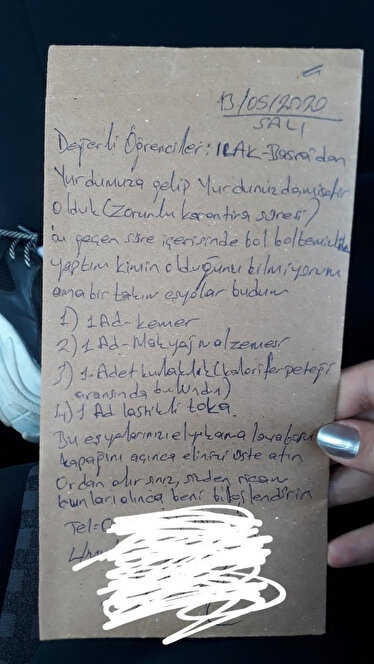 13/05/2020
SALI
Değerli Öğrenciler: IRAK-Basra'dan
Yurdumuza gelip Yurdunuzda misafir
olduk (Zorunlu karantina süresi)
bu geçen süre içerisinde bol bol temizlik
yaptım kimin olduğunu bilmiyorum
ama bir takım eşyalar buldum
1) 1 Ad-kemer
2) 1 Ad-Makyaj malzemesi
3) 1-Adet kulaklık (kalorifer peteği
arasında bulundu)
4) 1 Ad lastikli toka
Bu eşyalarınızı el yıkama lavabosu
kapağını açınca elinizi üste atın
Ordan alırsınız, sizden ricam
bunları alınca beni bilgilendirin
Tel=0